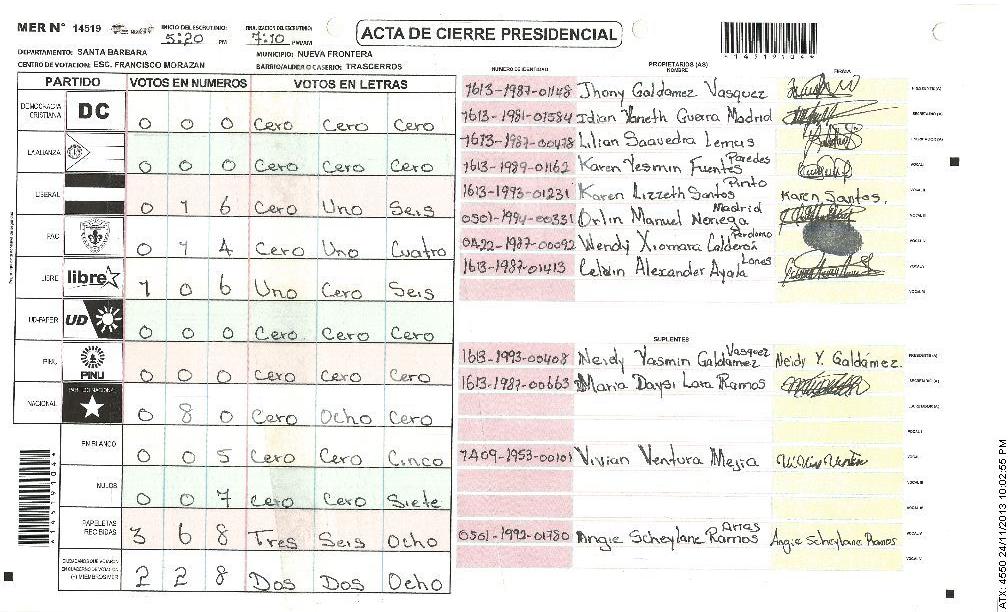 MER N° 14519 INICIO DEL ESCRUTINIO: 5:20 PM FINALIZACION DEL ESCRUTINIO: 7:10 PM/AM
ACTA DE CIERRE PRESIDENCIAL
*14519104*
DEPARTAMENTO: SANTA BARBARA MUNICIPIO: NUEVA FRONTERA
CENTRO DE VOTACION: ESC. FRANCISCO MORAZAN BARRIO/ALDEA O CASERIO: TRASCERROS
PARTIDO VOTOS EN NUMEROS VOTOS EN LETRAS
DEMOCRACIA CRISTIANA DC 0 0 0 Cero Cero Cero
LA ALIANZA 0 0 0 Cero Cero Cero
LIBERAL 0 1 6 Cero Uno Seis
PAC 0 1 4 Cero Uno Cuatro
LIBRE libre 1 0 6 Uno Cero Seis
UD-FAPER UD 0 0 0 Cero Cero Cero
PINU PINU 0 0 0 Cero Cero Cero
NACIONAL PARTIDO NACIONAL 0 8 0 Cero Ocho Cero
EN BLANCO 0 0 5 Cero Cero Cinco
NULOS 0 0 7 Cero Cero Siete
PAPELETAS RECIBIDAS 3 6 8 Tres Seis Ocho
CIUDADANOS QUE VOTARON EN CUADERNO DE VOTACION (+) MIEMBROS MER 2 2 8 Dos Dos Ocho
PROPIETARIOS (AS)
NUMERO DE IDENTIDAD NOMBRE FIRMA
1613-1987-01148 Jhony Galdamez Vasquez PRESIDENTE (A)
1613-1981-01584 Idian Yaneth Guerra Madrid SECRETARIO (A)
1613-1987-00478 Lilian Saavedra Lemus
1613-1989-01162 Karen Yesmin Fuentes Paredes VOCAL I
1613-1993-01231 Karen Lizzeth Santos Pinto Karen Santos. VOCAL II
0501-1994-00331 Orlin Manuel Noriega Madrid VOCAL III
0422-1987-00092 Wendy Xiomara Calderón Perdomo
1613-1987-01413 Celdin Alexander Ayala
SUPLENTES
1613-1993-00408 Neidy Yasmin Galdamez Vasquez Neidy Y. Galdámez. PRESIDENTE (A)
1613-1987-00663 Maria Daysi Lara Ramos SECRETARIO (A)
1409-1953-00101 Vivian Ventura Mejia
0501-1992-01780 Angie Scheylane Ramos Arias Angie Scheylane Ramos
*14519104*
ATX: 4550 24/11/2013 10:02:55 PM